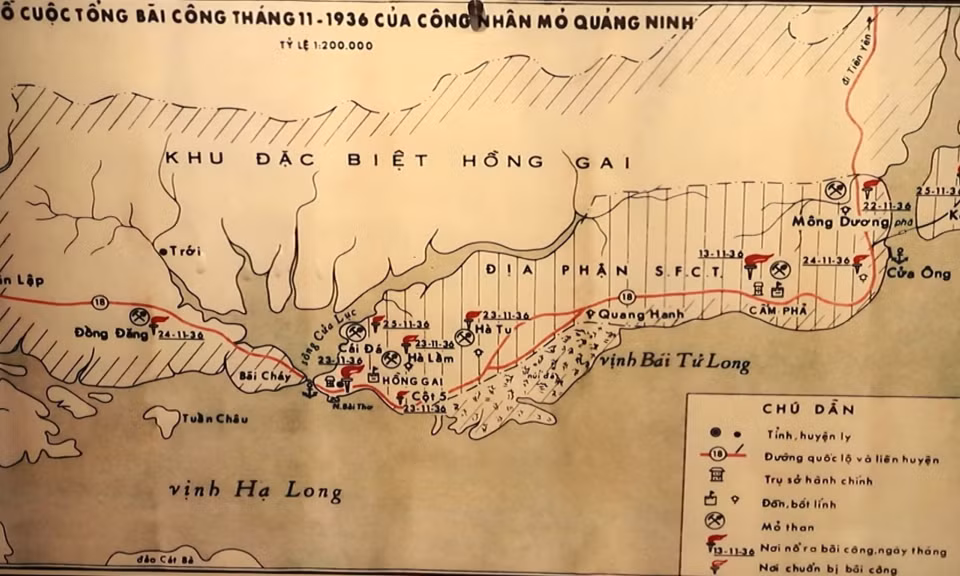 Ồ CUỘC TỔNG BÃI CÔNG THÁNG 11-1936 CỦA CÔNG NHÂN MỎ QUẢNG NINH
TỶ LỆ 1:200.000
đi Tiên Yên
KHU ĐẶC BIỆT HỒNG GAI
25-11-36
22-11-36
Mông Dương
phà
Trới
13-11-36
24-11-36
ĐỊA PHẬN S.F.C.T.
Cửa Ông
ân Lập
18
18
CẨM PHẢ
Quang Hanh
Đồng Đăng
24-11-36
sông Cửa Lục
25-11-36
23-11-36
Hà Tu
Cái Đá
23-11-36
Hà Lầm
23-11-36
vịnh Bái Tử Long
Bãi Cháy
HỒNG GAI
núi đá
N. Bài Thơ
Cột 5
23-11-36
Tuần Châu
vịnh Hạ Long
đảo Cát Bà
CHÚ DẪN
Tỉnh, huyện lỵ
18 Đường quốc lộ và liên huyện
Trụ sở hành chính
Đồn, bốt lính
Mỏ than
13-11-36 Nơi nổ ra bãi công, ngày tháng
Nơi chuẩn bị bãi công